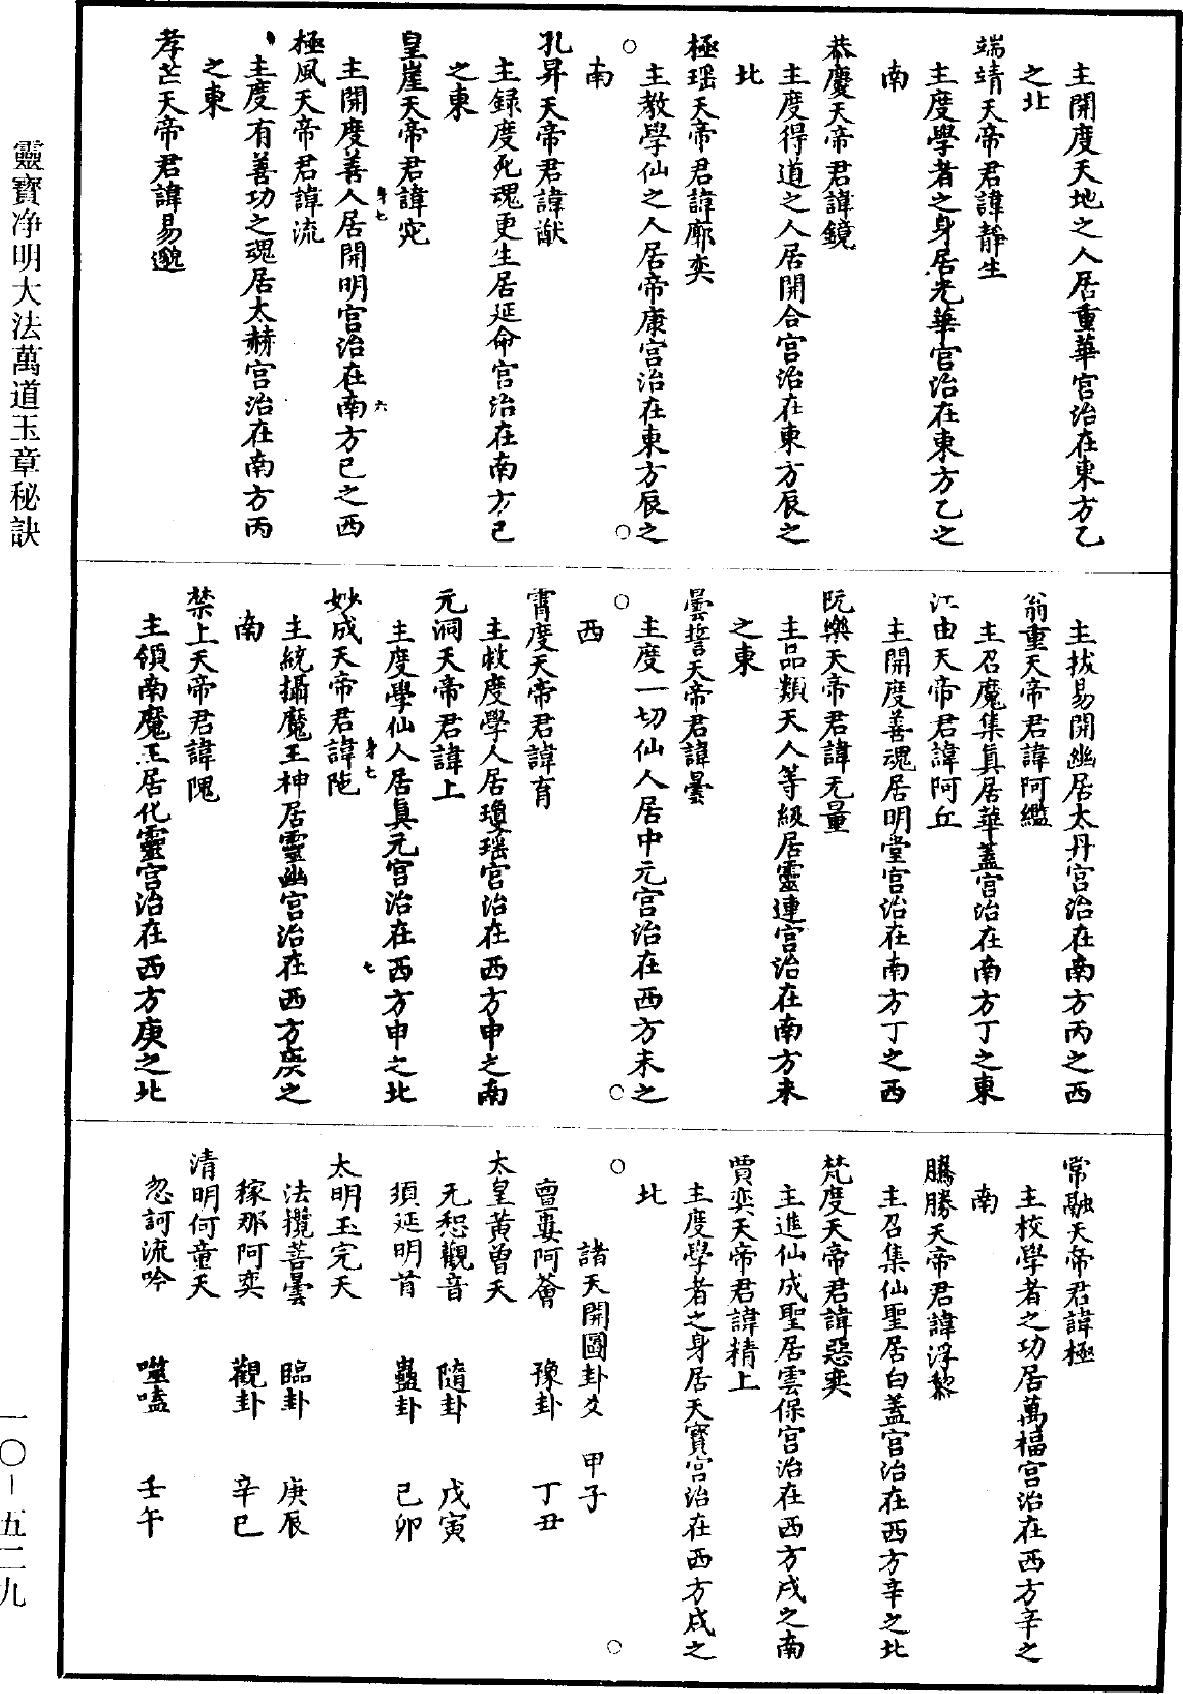 主開度天地之人居重華宮治在東方乙
之北
端靖天帝君諱靜生
主度學者之身居光華宮治在東方乙之
南
恭慶天帝君諱鏡
主度得道之人居開合宮治在東方辰之
北
極瑶天帝君諱廓奕
主教學仙之人居帝康宮治在東方辰之
南
孔昇天帝君諱猷
主録度死魂更生居延命宮治在南方巳
之東
皇崖天帝君諱宛
主開度善人居開明宮治在南方巳之西
極風天帝君諱流
主度有善功之魂居太赫宮治在南方丙
之東
孝芒天帝君諱易邈
主拔易開幽居太丹宮治在南方丙之西
翁重天帝君諱阿繿
主召魔集真居華蓋宮治在南方丁之東
江由天帝君諱阿丘
主開度善魂居明堂宮治在南方丁之西
阮樂天帝君諱无量
主品類天人等級居靈連宮治在南方未
之東
曇誓天帝君諱曇
主度一切仙人居中元宮治在西方未之
西
霄度天帝君諱育
主救度學人居瓊瑶宮治在西方申之南
元洞天帝君諱上
主度學仙人居真元宮治在西方申之北
妙成天帝君諱陁
主統攝魔王神居靈幽宮治在西方庚之
南
禁上天帝君諱隗
主領南魔王居化靈宮治在西方庚之北
常融天帝君諱極
主校學者之功居萬福宮治在西方辛之
南
騰勝天帝君諱浮黎
主召集仙聖居白蓋宮治在西方辛之北
梵度天帝君諱惡奕
主進仙成聖居雲保宮治在西方戌之南
賈奕天帝君諱精上
主度學者之身居天寶宮治在西方戌之
北
諸天開圖卦爻 甲子
亶婁阿薈 豫卦 丁丑
太皇黃曾天
无恝觀音 隨卦 戊寅
須延明首 蠱卦 己卯
太明玉完天
法攬菩曇 臨卦 庚辰
稼那阿奕 觀卦 辛巳
清明何童天
忽訶流吟 噬嗑 壬午
靈寶净明大法萬道玉章秘訣
一〇-五二九